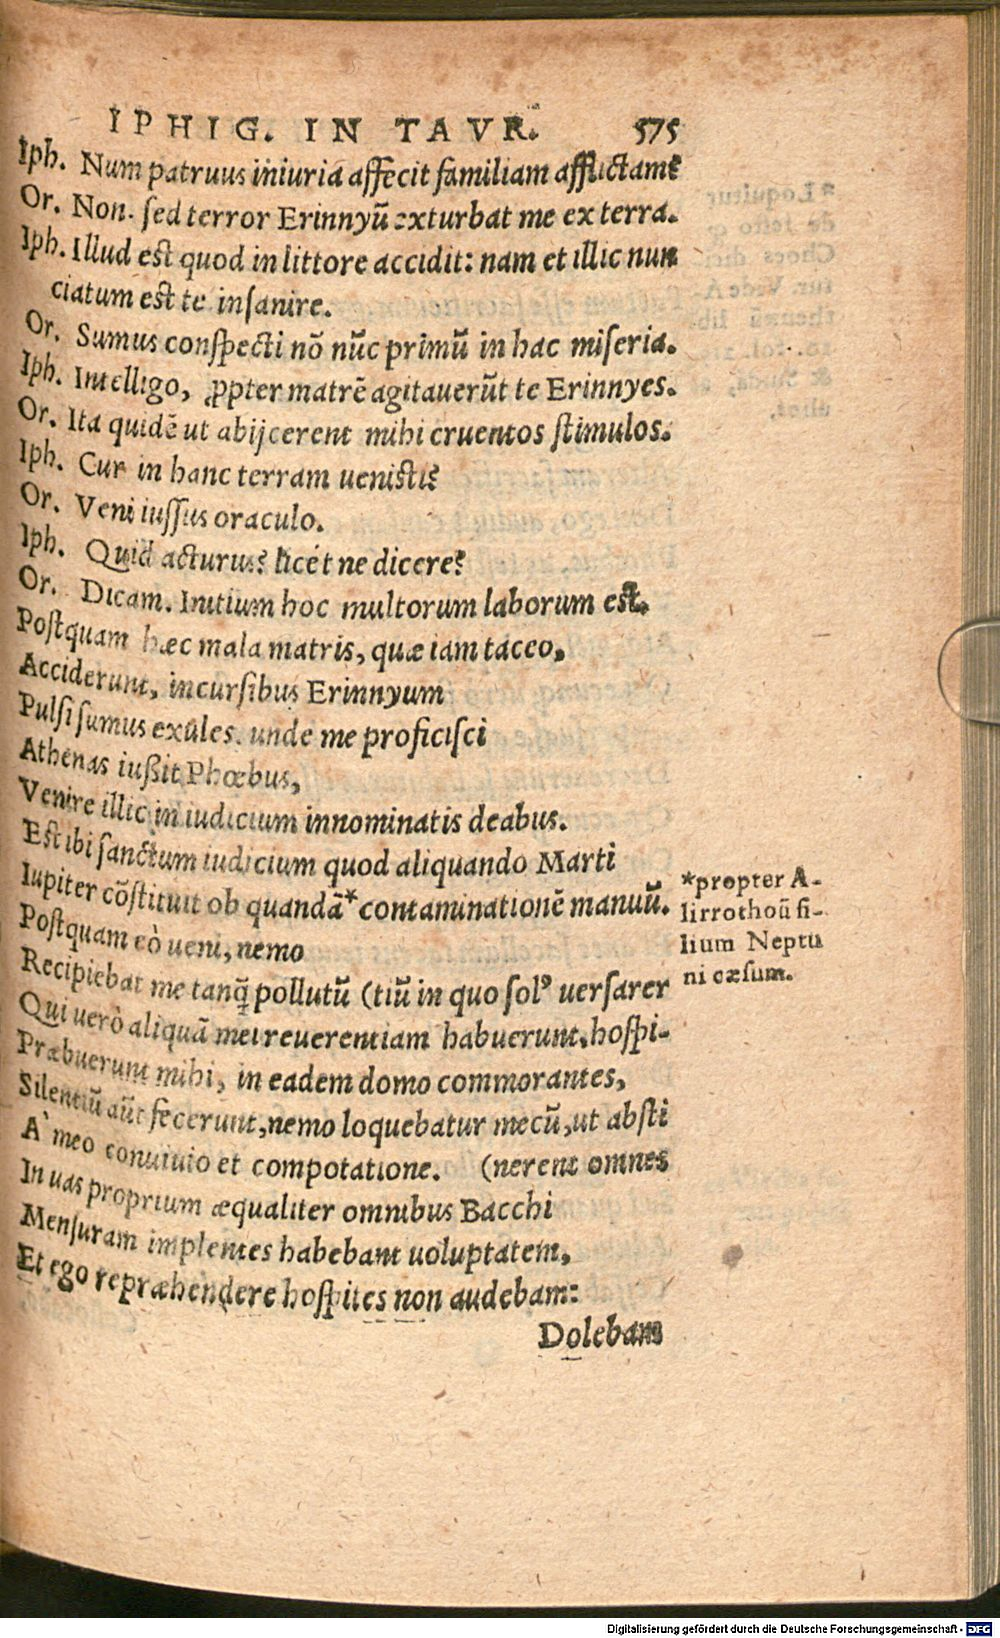 IPHIG. IN TAVR. 575
Iph. Num patruus iniuria affecit familiam afflictam?
Or. Non. sed terror Erinnyũ exturbat me ex terra.
Iph. Illud est quod in littore accidit: nam et illic nun
ciatum est te insanire.
Or. Sumus conspecti nõ nũc primũ in hac miseria.
Iph. Intelligo, ꝓpter matrẽ agitauerũt te Erinnyes.
Or. Ita quidẽ ut abijcerent mihi cruentos stimulos.
Iph. Cur in hanc terram uenisti?
Or. Veni iussus oraculo.
Iph. Quid acturus? licét ne dicere?
Or. Dicam. Initium hoc multorum laborum est.
Postquam hæc mala matris, quæ iam taceo,
Acciderunt, incursibus Erinnyum
Pulsi sumus exules. unde me proficisci
Athenas iußit Phœbus,
Venire illic in iudicium innominatis deabus.
Est ibi sanctum iudicium quod aliquando Marti
Iupiter cõstituit ob quandã* contaminationẽ manuũ.
Postquam eò ueni, nemo
Recipiebat me tanq̃ pollutũ (tiũ in quo solꝰ uersarer
Qui uerò aliquã mei reuerentiam habuerunt, hospi-
Præbuerunt mihi, in eadem domo commorantes,
Silentiũ aũt fecerunt, nemo loquebatur mecũ, ut absti
A` meo conuiuio et compotatione. (nerent omnes
In uas proprium æqualiter omnibus Bacchi
Mensuram implentes habebant uoluptatem,
Et ego repræhendere hospites non audebam:
Dolebam
*propter A-
lirrothoũ fi-
lium Neptu
ni cæsum.
Digitalisierung gefördert durch die Deutsche Forschungsgemeinschaft - DFG